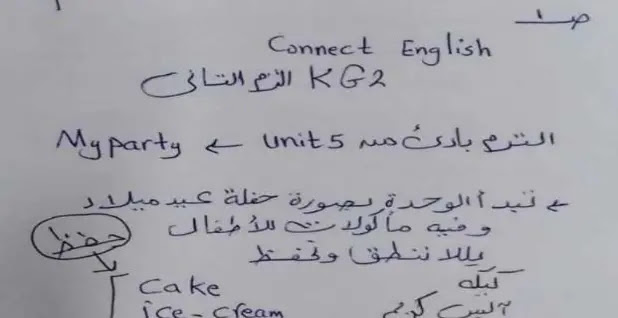 ص١
Connect English
KG2 الترم الثانى
الترم بادئ من Unit 5 ← My party
← نبدأ الوحدة بصورة حفلة عيد ميلاد
وفيه مأكولات للأطفال
يللا ننطق ونحفظ
حفظ
Cake كيكه
ice-cream آيس كريم